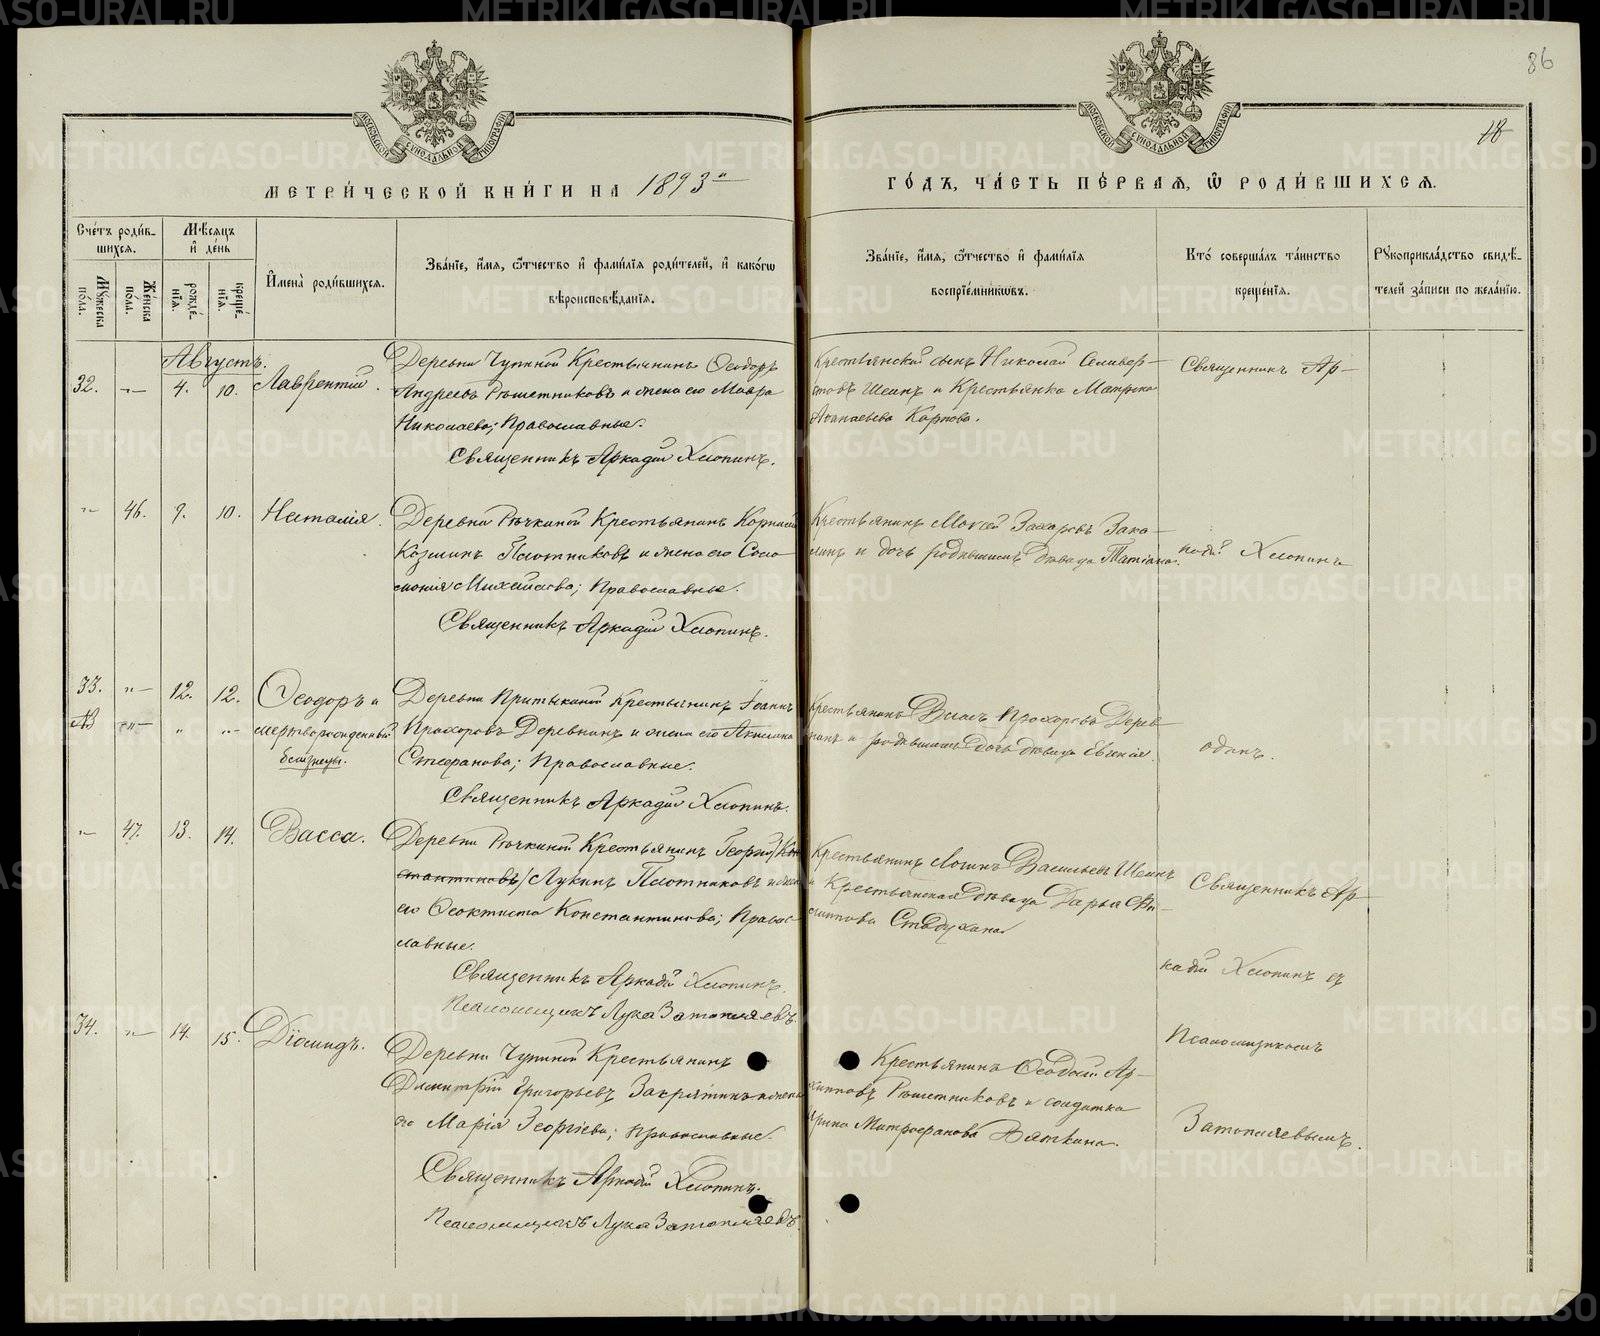 86
18
МЕТРИ́ЧЕСКОЙ КНИ́ГИ НА 1893й
ГО́ДЪ, ЧА́СТЬ ПЕ́РВАЯ, Ѡ РОДИ́ВШИХСЯ.
Сче́тъ роди́в-
шихся.
Мѣ́сяцъ
и де́нь
Му́жеска
по́ла.
Же́нска
по́ла.
рожде́-
нїя.
креще́-
нїя.
Имена̀ роди́вшихся.
Зва́нїе, и́мя, ѻ́тчество и фами́лїя роди́телей, и како́гѡ
вѣроисповѣ́данїя.
Зва́нїе, и́мя, ѻ́тчество и фами́лїя
воспрїе́мникѡвъ.
Кто́ соверша́лъ та́инство
креще́нїя.
Рꙋкоприкла́дство свидѣ́-
телей за́писи по жела́нїю.
Августъ.
32. "— 4. 10. Лаврентій.
Деревни Чупиной Крестьянинъ Ѳеодоръ
Андреевъ Рѣшетниковъ и жена его Мавра
Николаева; Православные.
Священникъ Аркадій Хлопинъ.
Крестьянскій сынъ Николай Селивер-
стовъ Шеинъ и Крестьянка Матрона
Карпова.
Священникъ Ар-
"— 46. 9. 10. Наталія.
Деревни Рѣчкиной Крестьянинъ Корнилій
Козминъ Плотниковъ и жена его Соло-
монія Михайлова; Православные.
Священникъ Аркадій Хлопинъ.
Крестьянинъ Мокей Захаровъ Зака-
линъ и дочь родившихъ дѣвица Татіана.
кадій Хлопинъ
33. "— 12. 12. Ѳеодоръ и
мертворожденный
близнецы.
Деревни Притыкиной Крестьянинъ Іоаннъ
Прохоровъ Деревнинъ и жена его Акилина
Стефанова; Православные.
Священникъ Аркадій Хлопинъ.
Крестьянинъ Власъ Прохоровъ Дерев-
нинъ и родившихъ дочь дѣвица Евгенія.
одинъ.
"— 47. 13. 14. Васса.
Деревни Рѣчкиной Крестьянинъ Георгій /Кон-
стантиновъ/ Лукинъ Плотниковъ и жена
его Ѳеоктиста Константинова; Право-
славные.
Священникъ Аркадій Хлопинъ.
Псаломщикъ Лука Затопляевъ.
Крестьянинъ Логинъ Васильевъ Шеинъ
и Крестьянская дѣвица Дарья Фи-
липпова Стадухина
Священникъ Ар-
кадій Хлопинъ съ
Псаломщикомъ
Затопляевымъ.
34. "— 14. 15. Діомидъ.
Деревни Чупиной Крестьянинъ
Димитрій Григорьевъ Закрятинъ и жена
его Марія Георгіева; Православные.
Священникъ Аркадій Хлопинъ.
Псаломщикъ Лука Затопляевъ.
Крестьянинъ Ѳеодосій Ар-
хиповъ Рѣшетниковъ и солдатка
Ирина Митрофанова Вяткина.